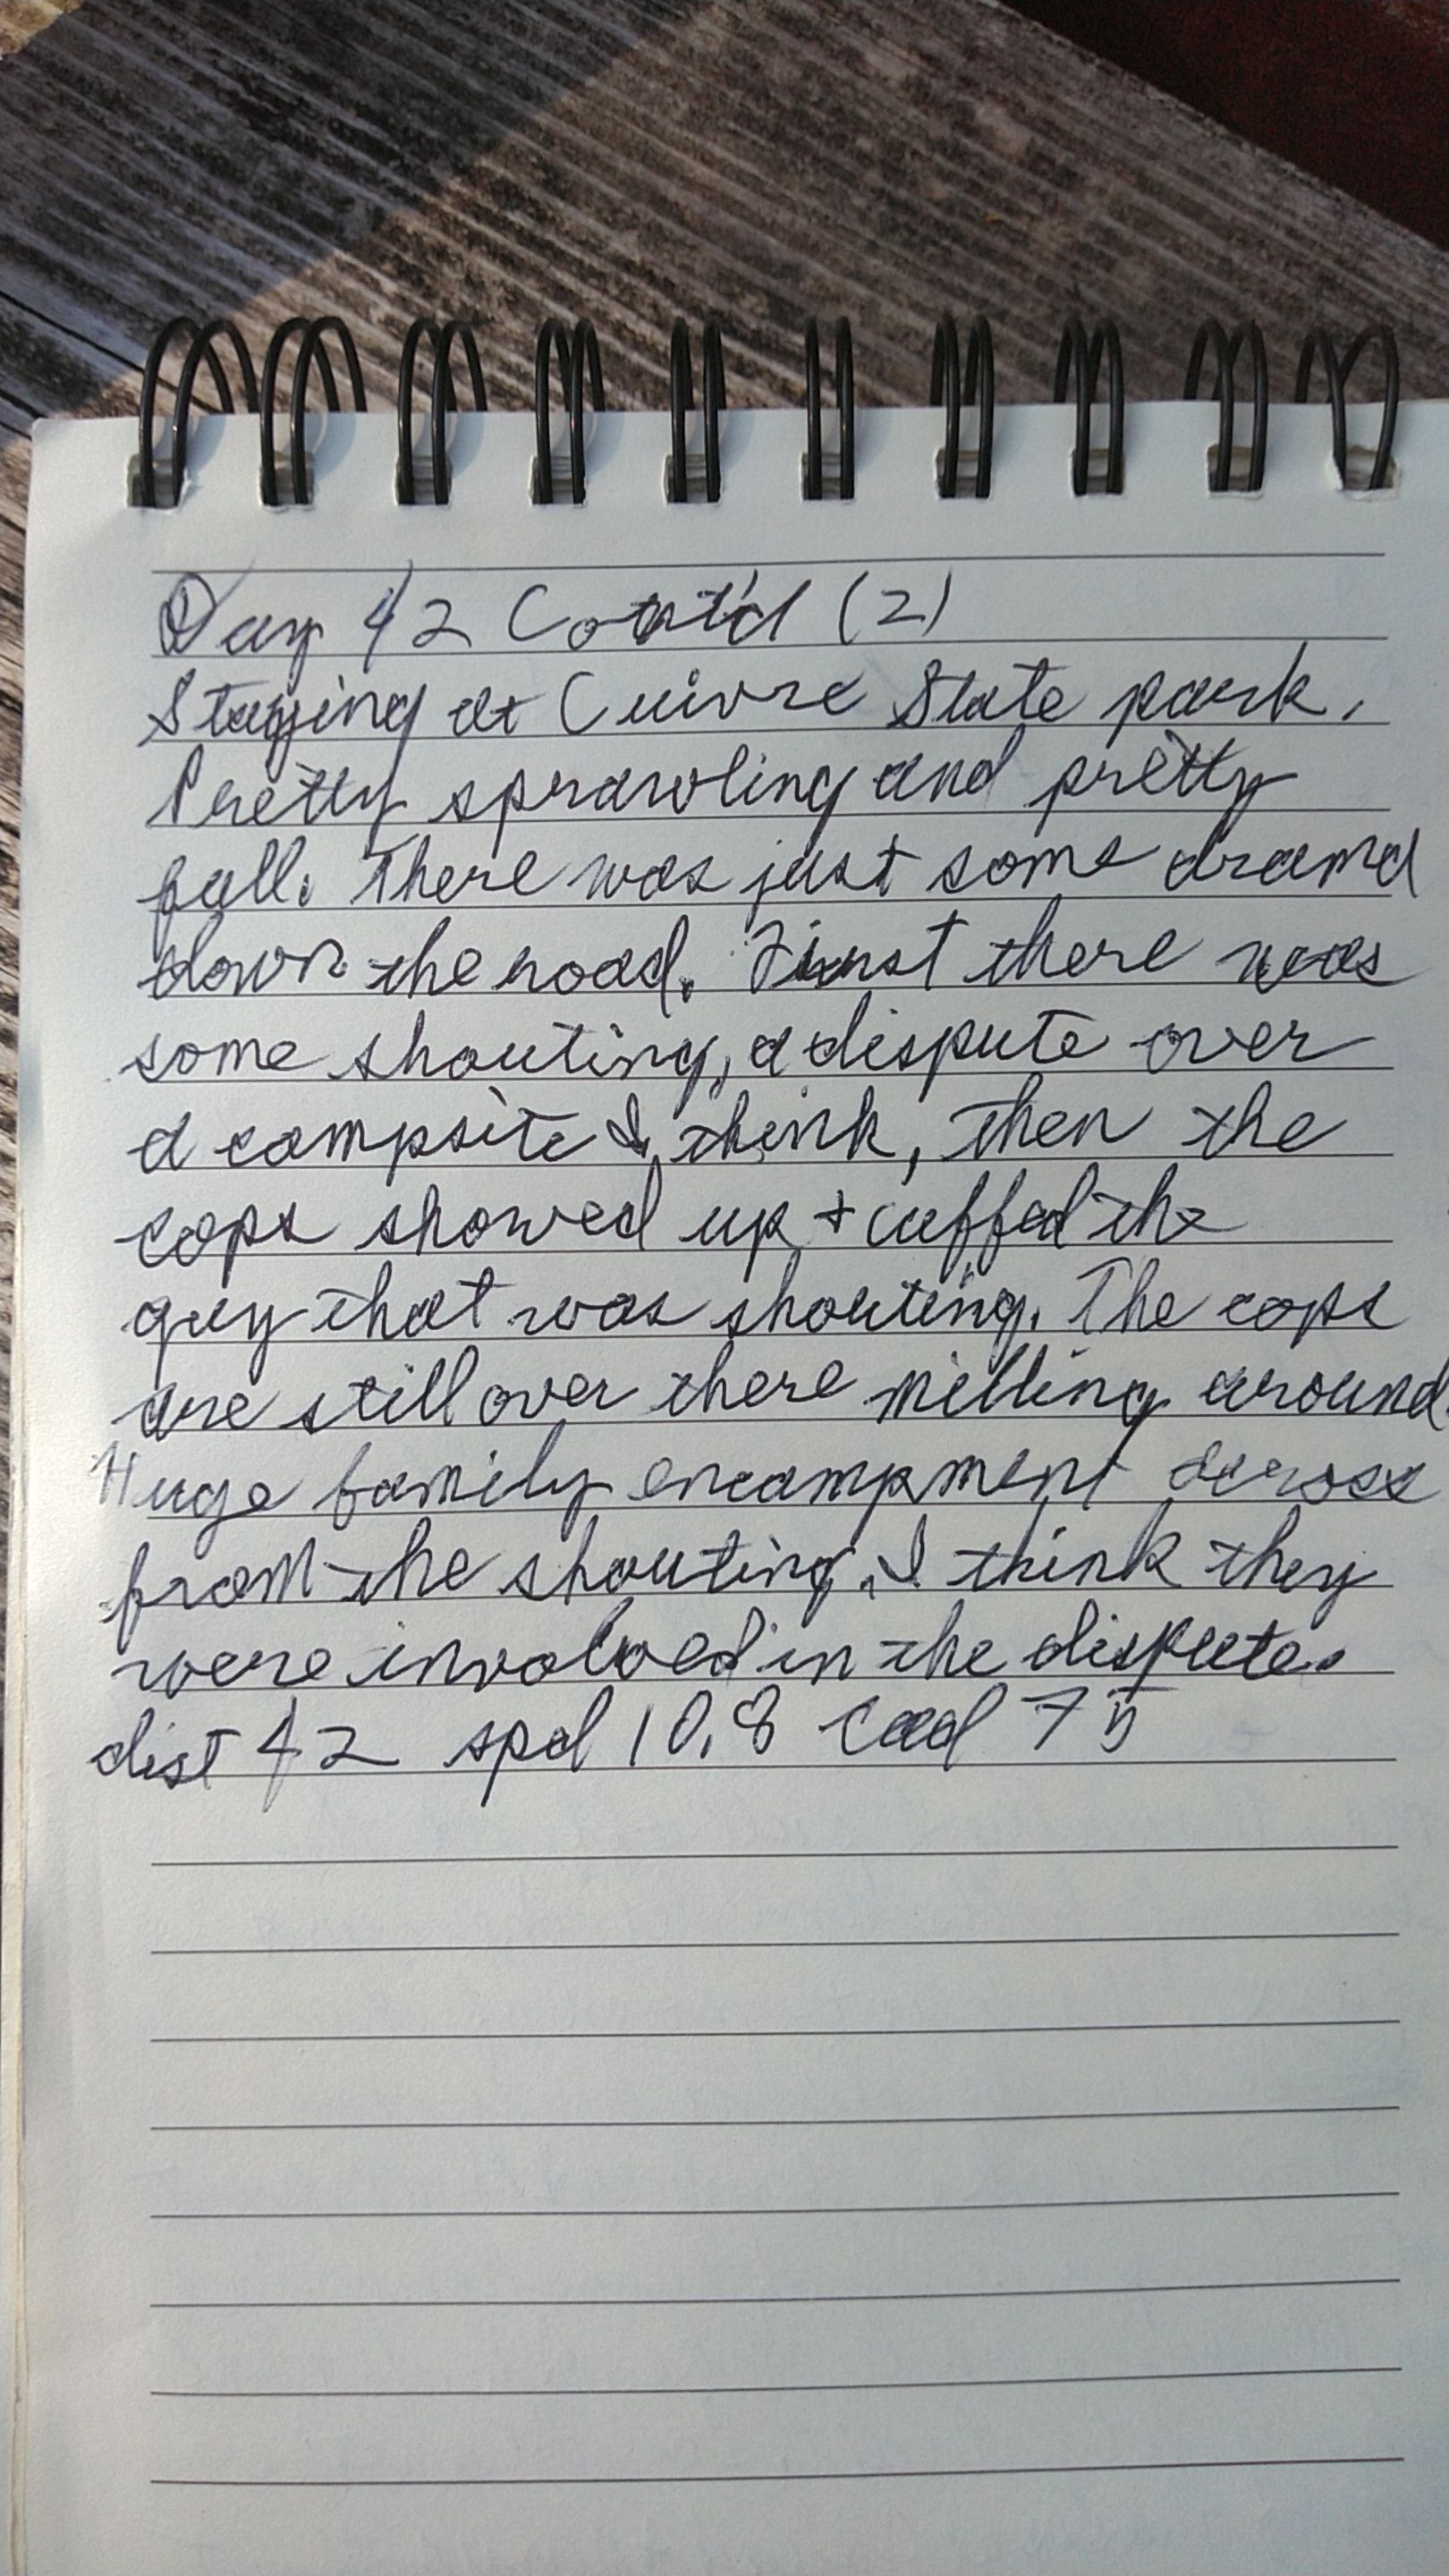 Day 42 Cont'd (2)
Staying at Cuivre State park.
Pretty sprawling and pretty
full. There was just some drama
down the road. First there was
some shouting, a dispute over
a campsite I think, then the
cops showed up + cuffed the
guy that was shouting. The cops
are still over there milling around.
Huge family encampment across
from the shouting, I think they
were involved in the dispute.
dist 42 spd 10.8 Cad 75